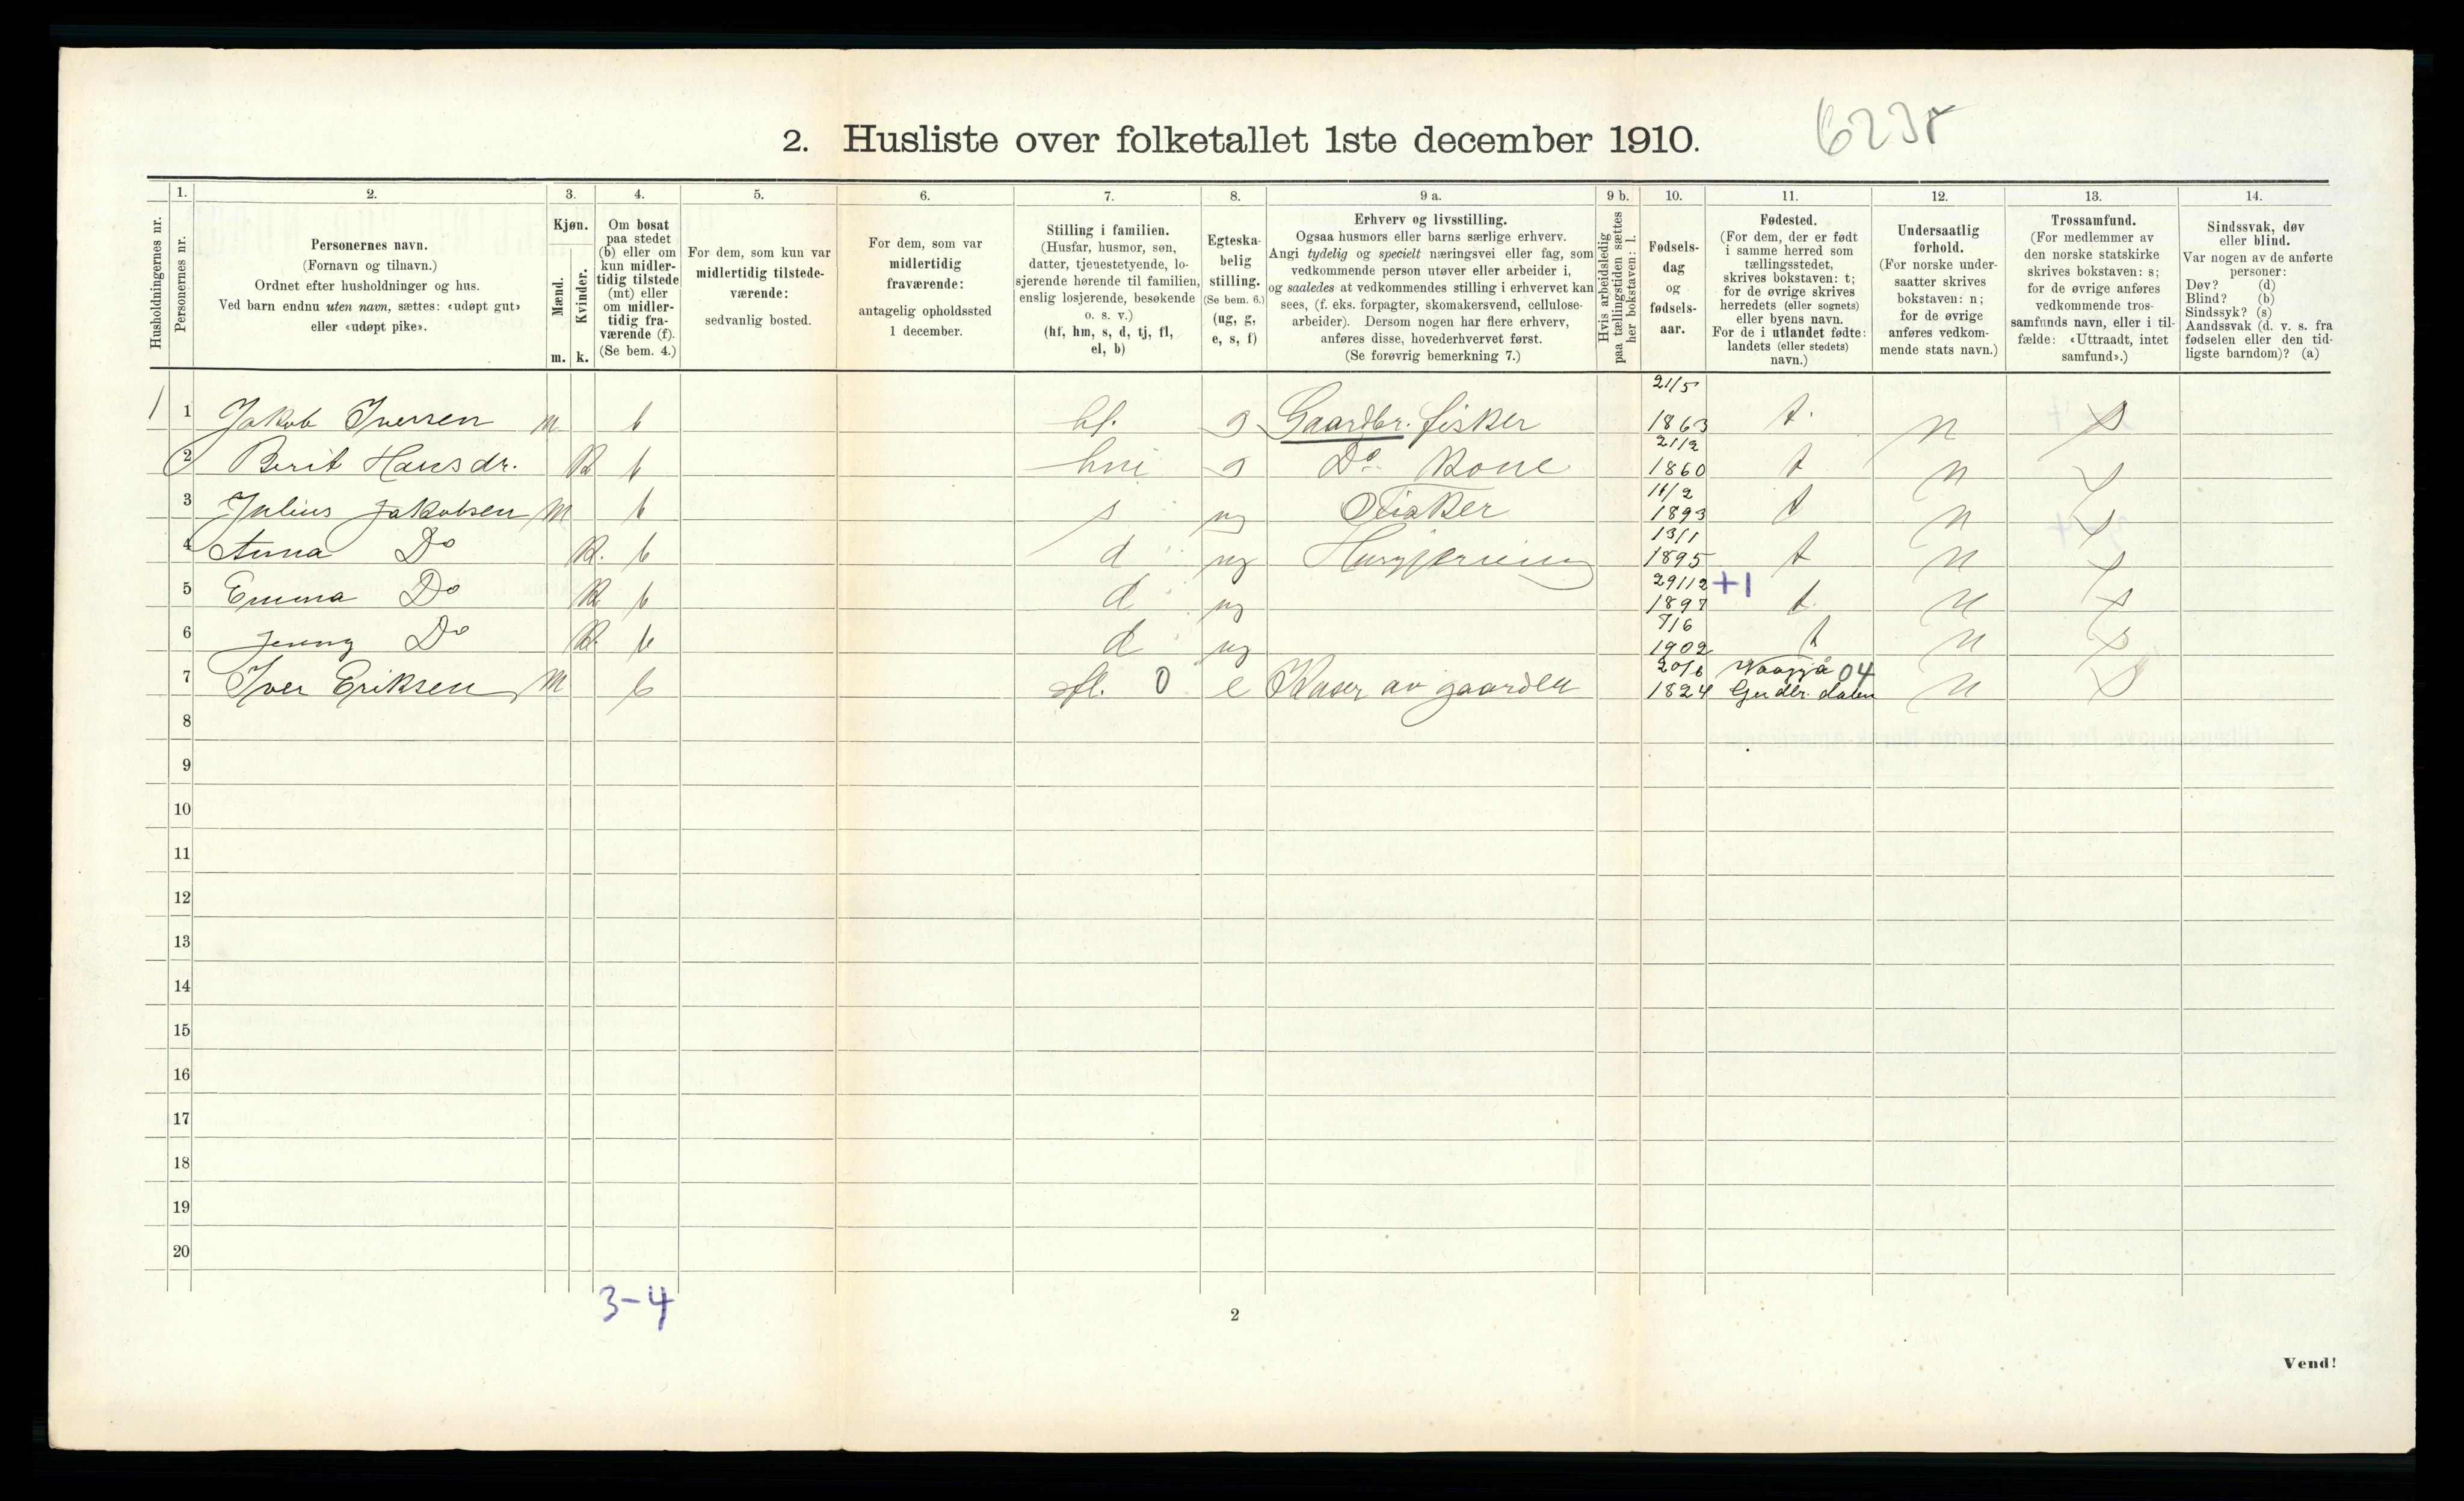 2. Husliste over folketallet 1ste december 1910.
Husholdningernes nr.
1.
Personernes nr.
2.
Personernes navn.
(Fornavn og tilnavn.)
Ordnet efter husholdninger og hus.
Ved barn endnu uten navn, sættes: «udøpt gut»
eller «udøpt pike».
3.
Kjøn.
Mænd.
Kvinder.
m. k.
4.
Om bosat
paa stedet
(b) eller om
kun midler-
tidig tilstede
(mt) eller
om midler-
tidig fra-
værende (f).
(Se bem. 4.)
5.
For dem, som kun var
midlertidig tilstede-
værende:
sedvanlig bosted.
6.
For dem, som var
midlertidig
fraværende:
antagelig opholdssted
1 december.
7.
Stilling i familien.
(Husfar, husmor, søn,
datter, tjenestetyende, lo-
sjerende hørende til familien,
enslig losjerende, besøkende
o. s. v.)
(hf, hm, s, d, tj, fl,
el, b)
8.
Egteska-
belig
stilling.
(Se bem. 6.)
(ug, g,
e, s, f)
9 a.
Erhverv og livsstilling.
Ogsaa husmors eller barns særlige erhverv.
Angi tydelig og specielt næringsvei eller fag, som
vedkommende person utøver eller arbeider i,
og saaledes at vedkommendes stilling i erhvervet kan
sees, (f. eks. forpagter, skomakersvend, cellulose-
arbeider). Dersom nogen har flere erhverv,
anføres disse, hovederhvervet først.
(Se forøvrig bemerkning 7.)
9 b.
Hvis arbeidsledig
paa tællingstiden sættes
her bokstaven: l.
10.
Fødsels-
dag
og
fødsels-
aar.
11.
Fødested.
(For dem, der er født
i samme herred som
tællingsstedet,
skrives bokstaven: t;
for de øvrige skrives
herredets (eller sognets)
eller byens navn.
For de i utlandet fødte:
landets (eller stedets)
navn.)
12.
Undersaatlig
forhold.
(For norske under-
saatter skrives
bokstaven: n;
for de øvrige
anføres vedkom-
mende stats navn.)
13.
Trossamfund.
(For medlemmer av
den norske statskirke
skrives bokstaven: s;
for de øvrige anføres
vedkommende tros-
samfunds navn, eller i til-
fælde: «Uttraadt, intet
samfund».)
14.
Sindssvak, døv
eller blind.
Var nogen av de anførte
personer:
Døv? (d)
Blind? (b)
Sindssyk? (s)
Aandssvak (d. v. s. fra
fødselen eller den tid-
ligste barndom)? (a)
1 1 Jakob Iversen m b hf. g Gaardbr. fisker 21/5 1863 t. n s
2 Berit Hansdr. k b hm g Do kone 21/2 1860 t n s
3 Julius Jakobsen m b s ug Fisker 11/2 1893 t n s
4 Anna Do k. b d ug Husgjerning 13/1 1895 t n s
5 Emma Do k b d ug 29/12 1897 +1 t n s
6 Jenny Do k. b d ug 7/6 1902 t n s
7 Iver Eriksen m b fl. 0 e Kaser av gaarden 20/6 1824 Vaagå 04 Gudbr. dalen n s
8
9
10
11
12
13
14
15
16
17
18
19
20
3-4
2
Vend!